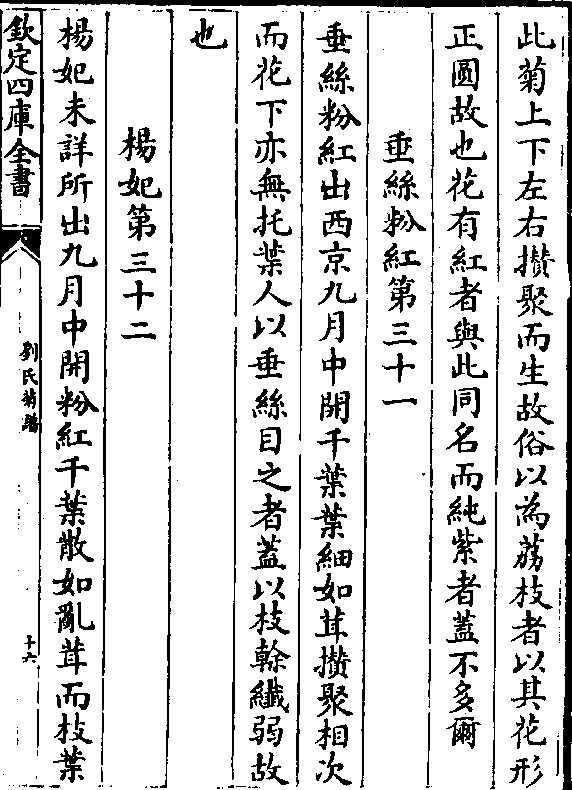 此菊上下左右攅聚而生故俗以為荔枝者以其花形
正圓故也花有紅者與此同名而純紫者蓋不多爾
垂絲粉紅第三十一
垂絲粉紅出西京九月中開千葉葉細如茸攅聚相次
而花下亦無托葉人以垂絲目之者蓋以枝幹纖弱故
也
楊妃第三十二
楊妃未詳所出九月中開粉紅千葉散如亂茸而枝葉
欽定四庫全書
劉氏菊譜
十六